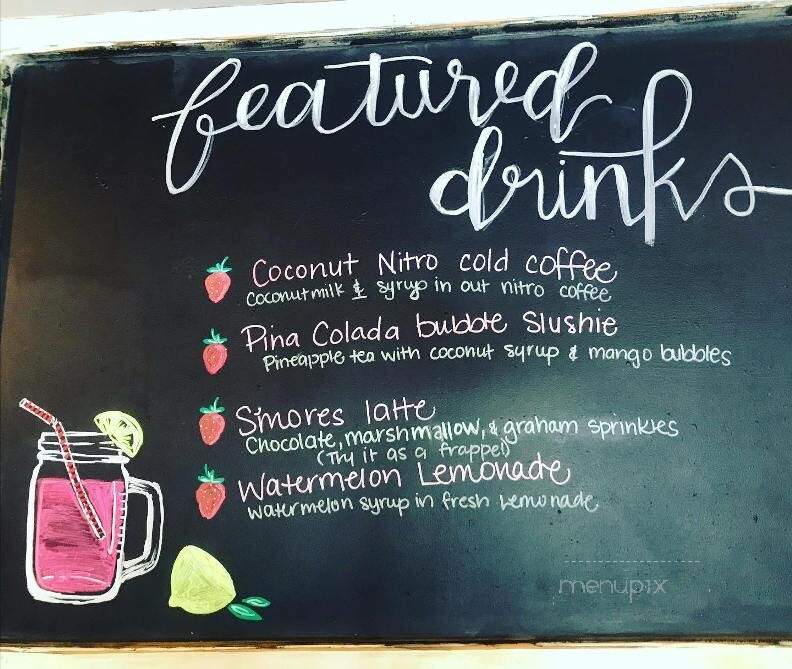 featured
drinks
Coconut Nitro cold coffee
Coconutmilk & syrup in out nitro coffee
Pina Colada bubble Slushie
Pineapple tea with coconut syrup & mango bubbles
S'mores latte
Chocolate, marshmallow, & graham sprinkles
(Try it as a frappe!)
Watermelon Lemonade
watermelon syrup in fresh Lemonade
menupix